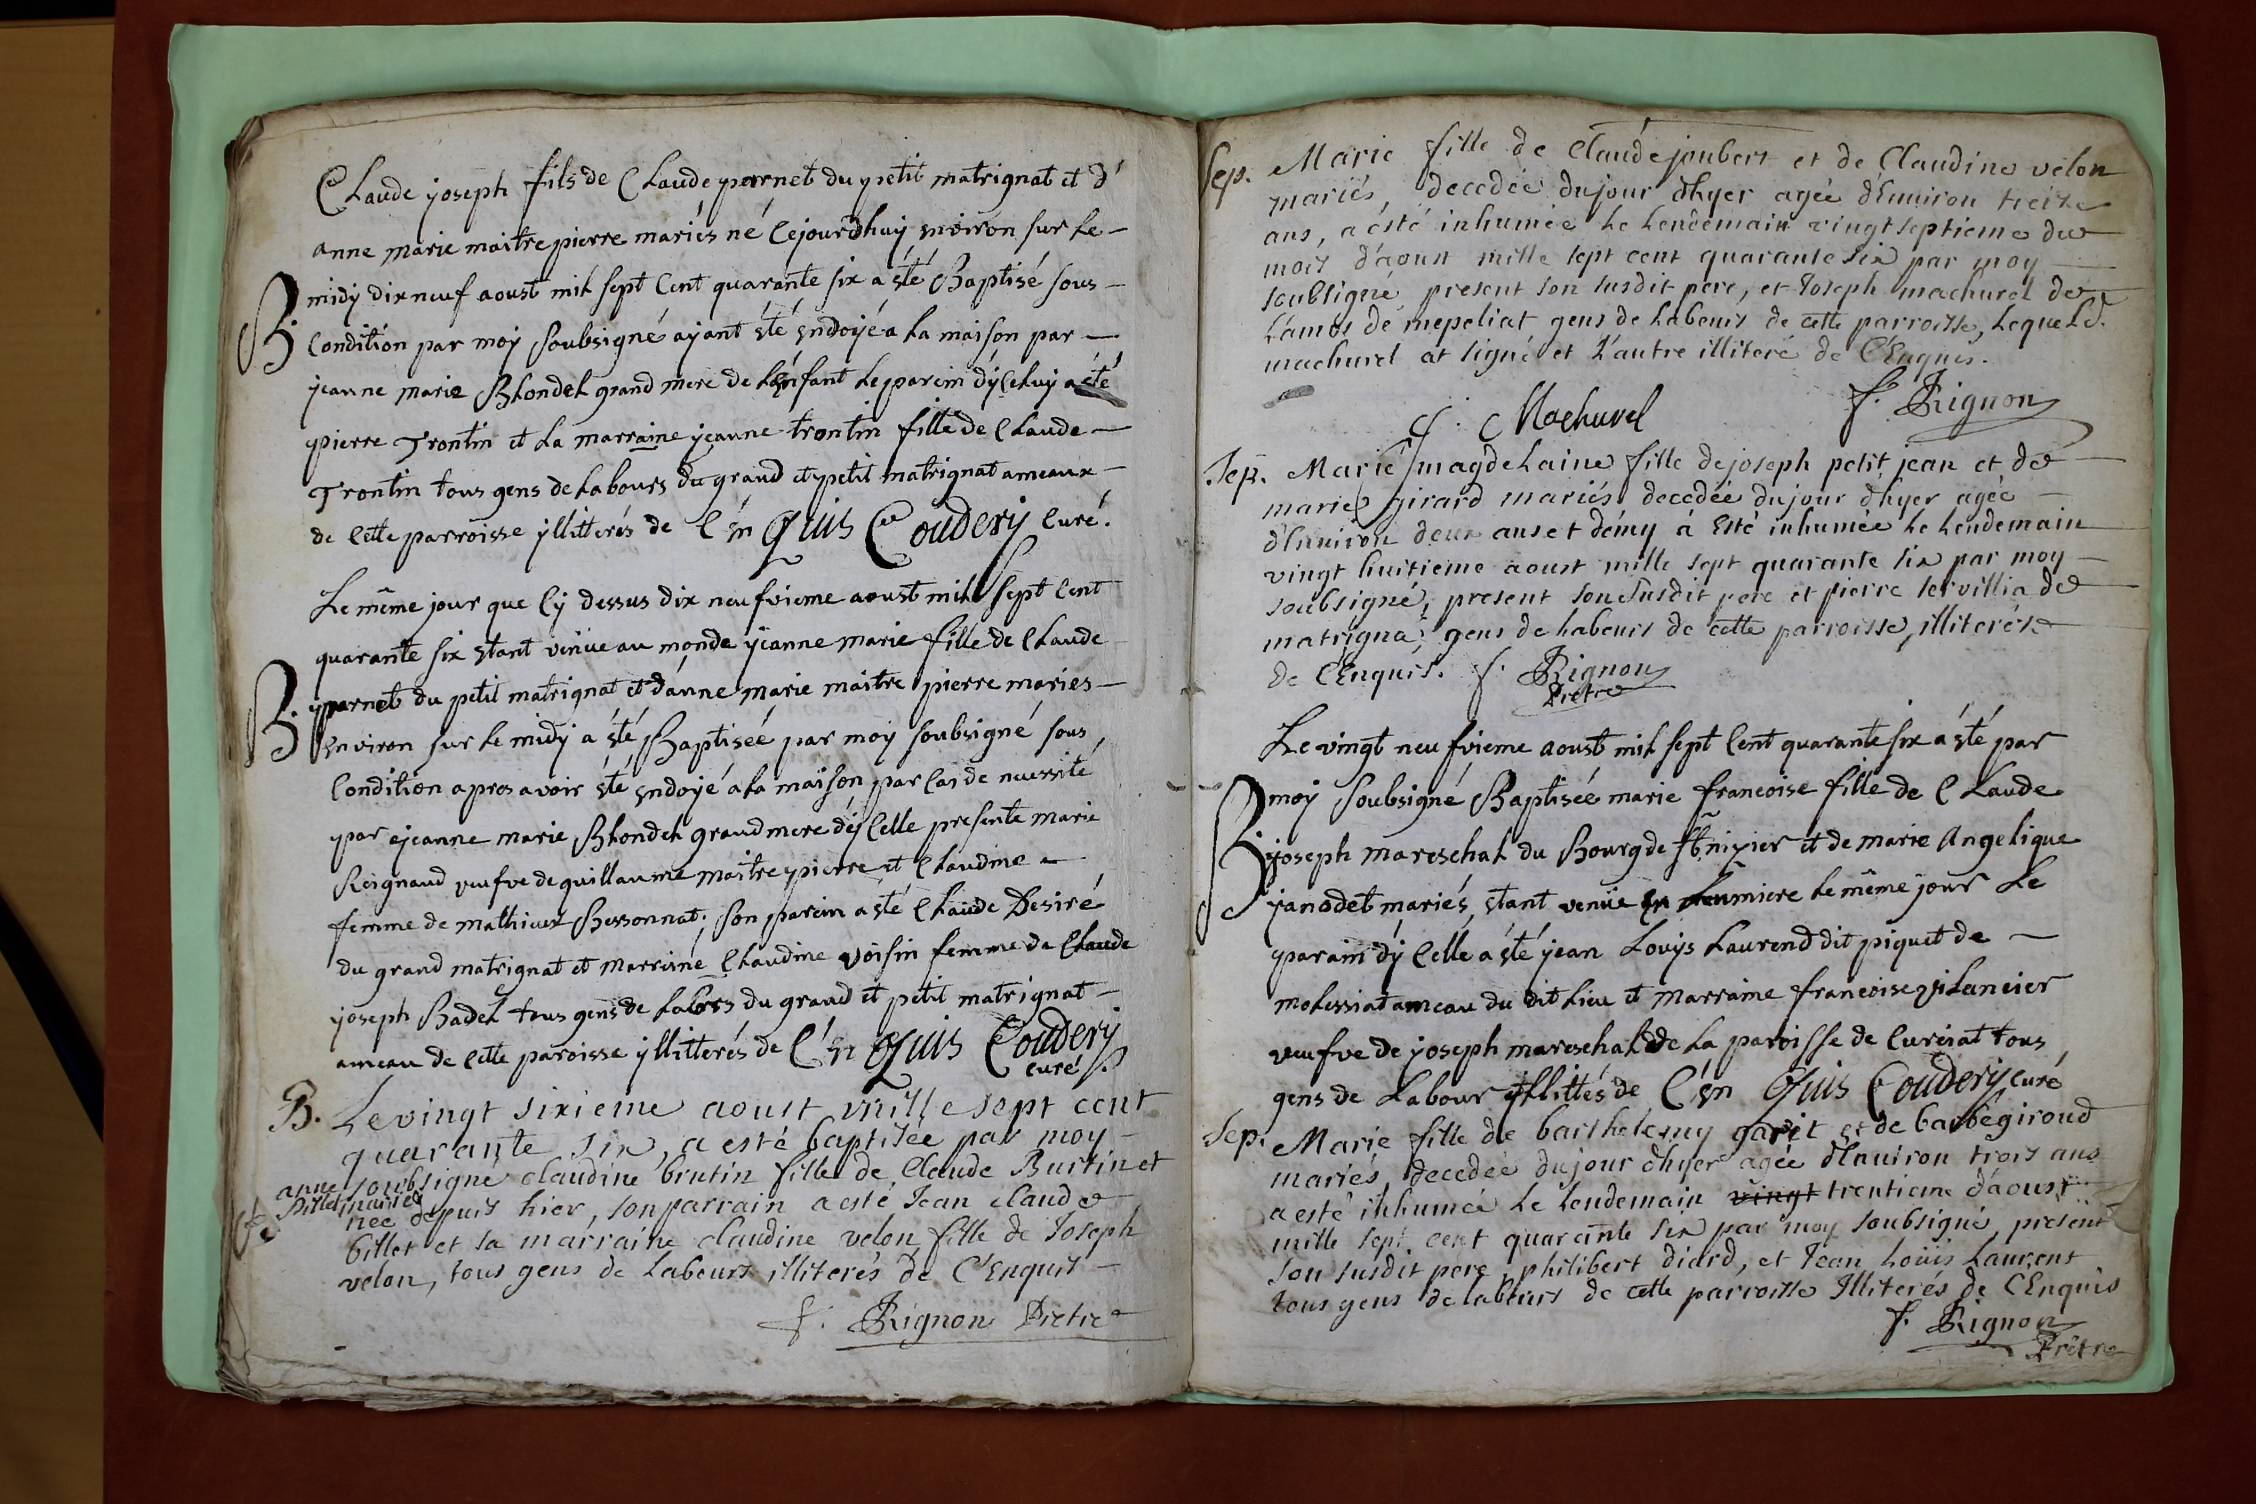 Claude joseph fils de Claude parnet du petit matrignat et d'
anne marie maitrepierre mariés né Cejourdhuy environ sur le
B. midy dix neuf aoust mil sept Cent quarante six a été Baptisé sous
Condition par moy soubsigné ayant été endoyé a la maison par
jeanne marie Blondel grand mere de l'enfant le parein d'yCeluy a été
pierre Trontin et la marraine jeanne trontin fille de Claude
Trontin tous gens de labours du grand et petit matrignat ameaux
de Cette parroisse yllitterés de C'en Quis Coudery Curé.
Le même jour que Cy dessus dix neufvieme aoust mil sept Cent
quarante six etant venüe au monde jeanne marie fille de Claude
B. parnet du petit matrignat et d'anne marie maitre pierre mariés
environ sur le midy a été Baptiseé par moy soubsigné sous
Condition apres avoir été endoyé a la maison par Cas de necessité
par jeanne marie Blondel grand mere d'yCelle presente marie
Reignaud veufve de guillaume maitrepierre et Claudine
femme de mathieux Bessonnat; son parein a été Claude Desiré
du grand matrignat et marraine Claudine Voisin femme de Claude
joseph Badel tous gens de labors du grand et petit matrignat
ameau de Cette paroisse yllitterés de C'en Quis Coudery
curé
B. Le vingt sixieme aoust mille sept cent
quarante six, a esté baptisée par moy
soubsigné claudine brutin fille de Claude Burtin et
anne
Billet mariés
née depuis hier, son parrain a esté Jean claude
billet et sa marraine claudine velon fille de Joseph
velon, tous gens de labeurs illiterés de C'Enquis
f. Rignon Pretre
Sep. Marie fille de Claude joubert et de Claudine velon
mariés, decedée dujour d'hyer agée d'Environ treize
ans, a ésté inhumée le lendemain vingt septieme du
mois d'aoust mille sept cent quarante six par moy
soubsigné, present son susdit pere, et Joseph machurel de
Lamos de mepeliat gens de labeurs de cette parroisse, lequel d.
machurel at signé et l'autre illiteré de C'Enquis.
J. Machurel f. Rignon
Sep. Marie magdelaine fille de joseph petit jean et de
marie girard mariés decedée dujour d'hyer agée
d'Environ deux ans et démy á Esté inhumée le lendemain
vingt huitieme aoust mille sept quarante six par moy
soubsigné, present son susdit pere et pierre servillia de
matrigna, gens de labeurs de cette parroisse, illiterés
de C'Enquis. f. Rignon
Pretre
Le vingt neufvieme aoust mil sept Cent quarante six a été par
moy soubsigné Baptiseé marie francoise fille de Claude
B. joseph mareschal du Bourg de St nizier et de marie Angelique
janodet mariés, etant venüe en lumiere le même jour Le
parain d'yCelle a été jean Louys Laurend dit piquet de
molessiat ameau du dit lieu et marraine francoise vilancier
veufve de joseph mareschal de la paroisse de Curciat tous
gens de Labour yllittés de C'en Quis Coudery curé
Sep. Marie fille de barthelemy gavit et de barbe giroud
mariés, decedée dujour d'hyer agée d'Environ trois ans
a esté inhumée le lendemain vingt trentieme d'aoust
mille sept cent quarante six par moy soubsigné, present
son susdit pere, philibert diard, et Jean Loüis Laurent
tous gens de labeurs de cette parroisse Illiterés de C'Enquis
f. Rignon
Prêtre